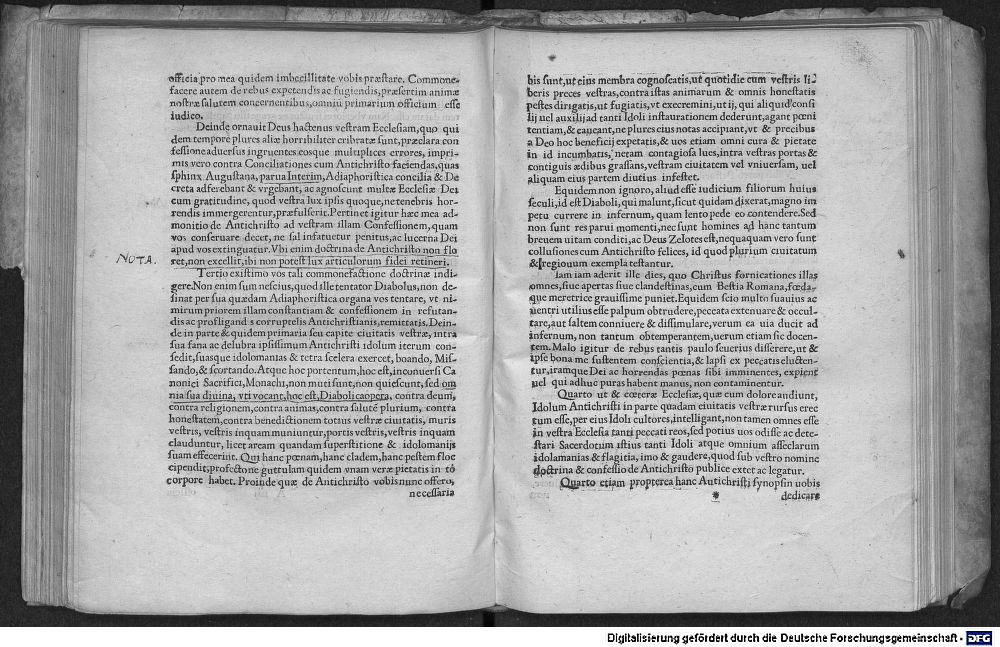 officia pro mea quidem imbecillitate vobis præstare. Commone-
facere autem de rebus expetendis ac fugiendis, præsertim animæ
nostræ salutem concernentibus, omniũ primarium officium esse
iudico.
Deinde ornauit Deus hactenus vestram Ecclesiam, quo qui
dem tempore plures aliæ horribiliter cribratæ sunt, præclara con
fessione aduersus ingruentes eosque multiplices errores, impri-
mis vero contra Conciliationes cum Antichristo faciendas, quas
sphinx Augustana, parua Interim, Adiaphoristica concilia & De
creta adferebant & vrgebant, ac agnoscunt multæ Ecclesiæ Dei
cum gratitudine, quod vestra lux ipsis quoque, ne tenebris hor-
rendis immergerentur, præfulserit. Pertinet igitur hæc mea ad-
monitio de Antichristo ad vestram illam Confessionem, quam
vos conseruare decet, ne sal infatuetur penitus, ac lucerna Dei
apud vos extinguatur. Vbi enim doctrina de Antichristo non flo
ret, non excellit, ibi non potest lux articulorum fidei retineri.
NOTA.
Tertio existimo vos tali commonefactione doctrinæ indi-
gere. Non enim sum nescius, quod ille tentator Diabolus, non de-
sinat per sua quædam Adiaphoristica organa vos tentare, vt ni-
mirum priorem illam constantiam & confessionem in refutan-
dis ac profligandis corruptelis Antichristianis, remittatis. Dein-
de in parte & quidem primaria seu capite ciuitatis vestræ, intra
sua fana ac delubra ipsissimum Antichristi idolum iterum con-
sedit, suasque idolomanias & tetra scelera exercet, boando, Mis-
sando, & scortando. Atque hoc portentum, hoc est, inconuersi Ca
nonici Sacrifici, Monachi, non muti sunt, non quiescunt, sed om
nia sua diuina, vti vocant, hoc est, Diabolica opera, contra deum,
contra religionem, contra animas, contra salutẽ plurium, contra
honestatem, contra benedictionem totius vestræ ciuitatis, muris
vestris, vestris inquam muniuntur, portis vestris, vestris inquam
clauduntur, licet aream quandam superstitione & idolomanijs
suam effecerint. Qui hanc pœnam, hanc cladem, hanc pestem floc
cipendit, profecto ne guttulam quidem vnam veræ pietatis in to
corpore habet. Proinde quæ de Antichristo vobis nunc offero,
necessaria
bis sunt, ut eius membra cognoscatis, ut quotidie cum vestris li-
beris preces vestras, contra istas animarum & omnis honestatis
pestes dirigatis, ut fugiatis, vt execremini, ut ij, qui aliquid consi
lij uel auxilij ad tanti Idoli instaurationem dederunt, agant pœni
tentiam, & caueant, ne plures eius notas accipiant, vt & precibus
a Deo hoc beneficij expetatis, & uos etiam omni cura & pietate
in id incumbatis, ne tam contagiosa lues, intra vestras portas &
contiguis ædibus grassans, vestram ciuitatem vel vniuersam, uel
aliquam eius partem diutius infestet.
Equidem non ignoro, aliud esse iudicium filiorum huius
seculi, id est Diaboli, qui malunt, sicut quidam dixerat, magno im
petu currere in infernum, quam lento pede eo contendere. Sed
non sunt res parui momenti, nec sunt homines ad hanc tantum
breuem uitam conditi, ac Deus Zelotes est, nequaquam vero sunt
collusiones cum Antichristo felices, id quod plurium ciuitatum
& regionum exempla testantur.
Iam iam aderit ille dies, quo Christus fornicationes illas
omnes, siue apertas siue clandestinas, cum Bestia Romana, fœda-
que meretrice grauissime puniet. Equidem scio multo suauius ac
uentri utilius esse palpum obtrudere, peccata extenuare & occul-
tare, aut saltem conniuere & dissimulare, verum ea uia ducit ad
infernum, non tantum obtemperantem, uerum etiam sic docen-
tem. Malo igitur de rebus tantis paulo seuerius disserere, ut &
ipse bona me sustentem conscientia, & lapsi ex peccatis eluctên-
tur, iramque Dei ac horrendas pœnas sibi imminentes, expient
uel qui adhuc puras habent manus, non contaminentur.
Quarto ut & cœteræ Ecclesiæ, quæ cum dolore audiunt,
Idolum Antichristi in parte quadam ciuitatis vestræ rursus erec
tum esse, per eius Idoli cultores, intelligant, non tamen omnes esse
in vestra Ecclesia tanti peccati reos, sed potius uos odisse ac dete-
stari Sacerdotum istius tanti Idoli atque omnium asseclarum
idolamanias & flagitia, imo & gaudere, quod sub vestro nomine
doctrina & confessio de Antichristo publice extet ac legatur.
Quarto etiam propterea hanc Antichristi synopsin uobis
dedicare
Digitalisierung gefördert durch die Deutsche Forschungsgemeinschaft - DFG